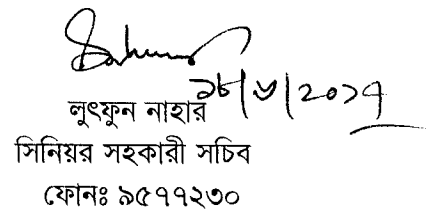 ১৮/৬/২০১৭
লুৎফুন নাহার
সিনিয়র সহকারী সচিব
ফোনঃ ৯৫৭৭২৩০